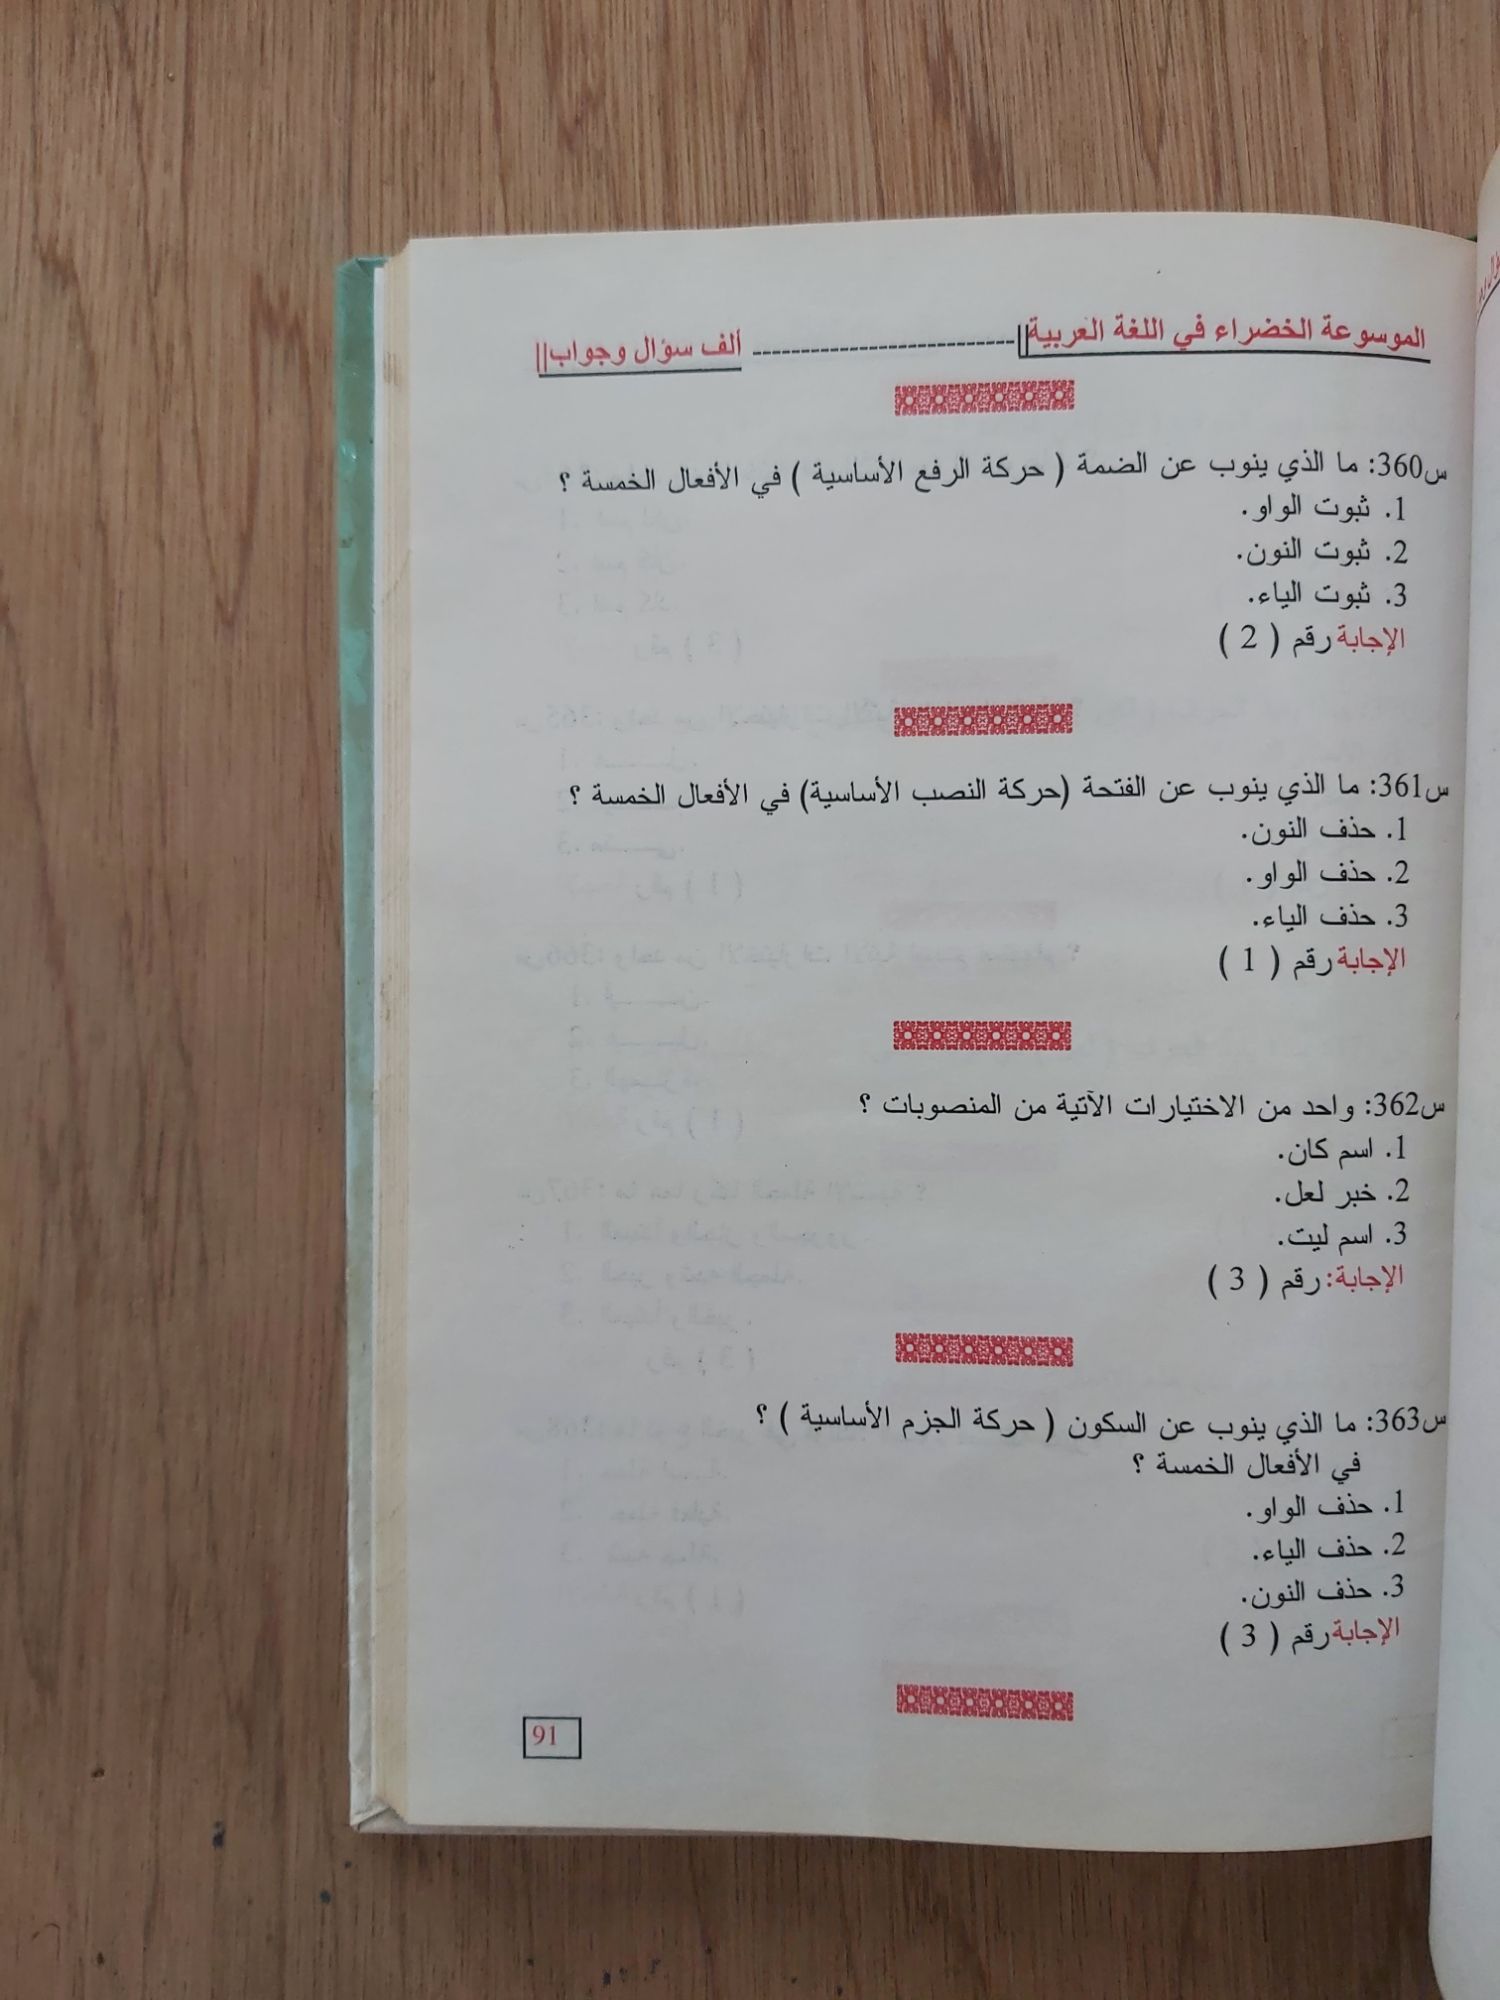 الموسوعة الخضراء في اللغة العربية || -------------------------- ألف سؤال وجواب ||
س360: ما الذي ينوب عن الضمة ( حركة الرفع الأساسية ) في الأفعال الخمسة ؟
1. ثبوت الواو.
2. ثبوت النون.
3. ثبوت الياء.
الإجابة رقم ( 2 )
س361: ما الذي ينوب عن الفتحة (حركة النصب الأساسية) في الأفعال الخمسة ؟
1. حذف النون.
2. حذف الواو.
3. حذف الياء.
الإجابة رقم ( 1 )
س362: واحد من الاختيارات الآتية من المنصوبات ؟
1. اسم كان.
2. خبر لعل.
3. اسم ليت.
الإجابة: رقم ( 3 )
س363: ما الذي ينوب عن السكون ( حركة الجزم الأساسية ) ؟
في الأفعال الخمسة ؟
1. حذف الواو.
2. حذف الياء.
3. حذف النون.
الإجابة رقم ( 3 )
91